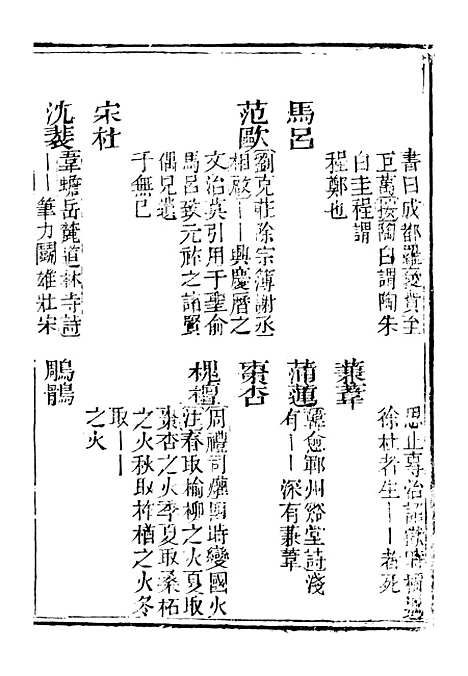 書曰成都羅裒貲至
巨萬按陶白謂陶朱
白圭程謂
程鄭也
馬呂
范歐
劉克莊除宗簿謝丞
相啟——興慶曆之
文治莫引用于聖俞
馬呂致元祐之諸賢
偶兄遺
于無已
宋杜
沈裴
韋蟾岳麓道林寺詩
——筆力鬬雄壯宋
思止尋治詔獄
徐杜者生——者死
蒹葦
蒲蓮
韓愈鄆州谿堂詩淺
有——深有蒹葦
棗杏
槐檀
周禮司爟四時變國火
注春取榆柳之火夏取
棗杏之火季夏取桑柘
之火秋取柞楢之火冬
取——
之火
鵰鶻